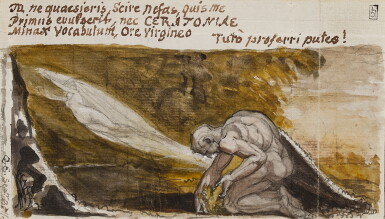 Tu, ne quaesieris, Scire nefas, quis me
Primus evulserit, nec CERITONIAE
Minax Vocabulum, Ore Virgineo
Tutò proferri putes!